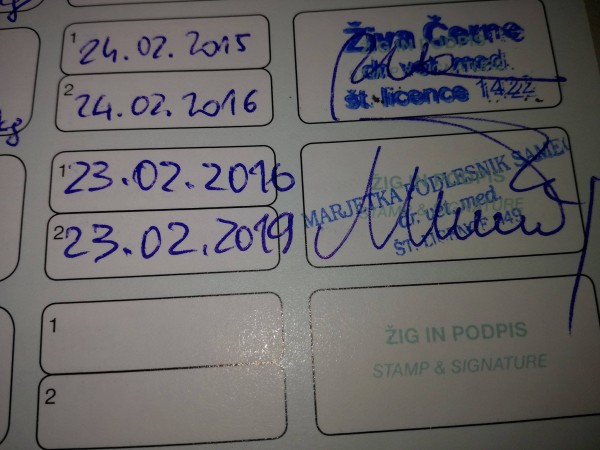 1 24.02.2015
2 24.02.2016
Živa Černe
dr. vet. med.
št. licence 1422
1 23.02.2016
2 23.02.2019
ŽIG IN PODPIS
STAMP & SIGNATURE
MARJETKA PODLESNIK
dr. vet. med.
1
2
ŽIG IN PODPIS
STAMP & SIGNATURE